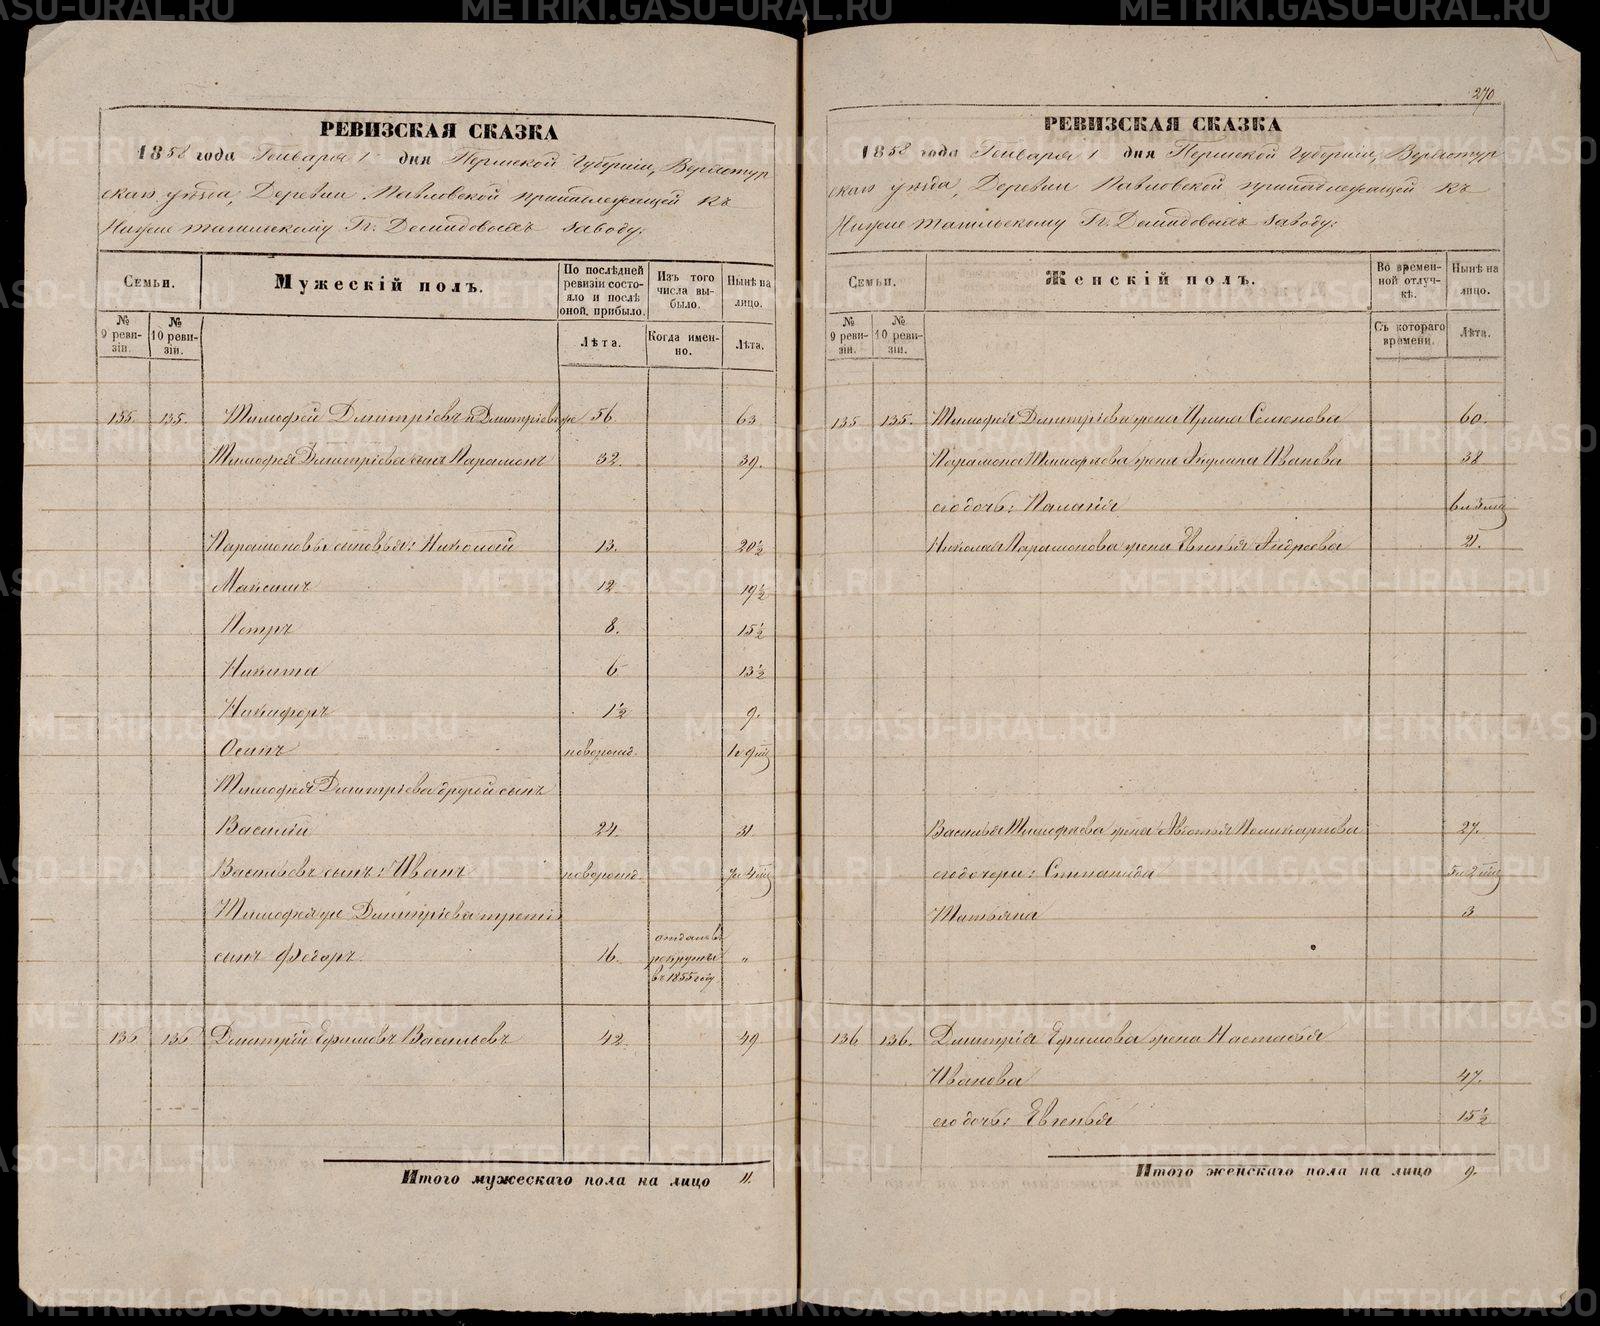 РЕВИЗСКАЯ СКАЗКА
1858 года Генваря 1 дня Пермской Губерніи, Верхотур
скаго уѣзда, Деревни Павловской принадлежащей къ
Нижне тагильскому Гг. Демидовыхъ заводу:
Семьи.
Мужескій полъ.
По послѣдней ревизіи состояло и послѣ оной, прибыло.
Изъ того числа выбыло.
Нынѣ на лицо.
№ 9 ревизіи.
№ 10 ревизіи.
Лѣта.
Когда именно.
Лѣта.
135. 135. Тимофей Дмитріевъ 56 63
Тимофея Дмитріева сынъ Парамонъ 32. 39.
Парамоновы сыновья: Николай 13. 20½
Максимъ 12 19½
Петръ 8. 15½
Никита 6 13½
Никифоръ 1½ 9.
Осипъ новорожд.
Тимофея Дмитріева другой сынъ
Василій 24. 31
Васильевъ сынъ: Иванъ новорожд.
Тимофея же Дмитріева третій
сынъ Федоръ 16. отданъ въ рекруты въ 1855 году „
136 136 Дмитрій Ефимовъ Васильевъ 42 49
Итого мужескаго пола на лицо 11.
270
РЕВИЗСКАЯ СКАЗКА
1858 года Генваря 1 дня Пермской Губерніи, Верхотур
скаго уѣзда, Деревни Павловской принадлежащей къ
Нижне тагильскому Гг. Демидовыхъ заводу:
Семьи.
Женскій полъ.
Во временной отлучкѣ.
Нынѣ на лицо.
№ 9 ревизіи.
№ 10 ревизіи.
Съ котораго времени.
Лѣта.
135 135. Тимофея Дмитріева жена Ирина Семенова 60.
Парамона Тимофѣева жена Акулина Иванова 38
его дочь: Палагія
Николая Парамонова жена Евгенья Андреева 21.
Василья Тимофѣева жена Авдотья Поликарпова 27.
его дочери: Степанида
Татьяна 3
136 136. Дмитрія Ефимова жена Настасья
Иванова 47.
его дочь: Евгенья 15½
Итого женскаго пола на лицо 9.
METRIKI.GASO-URAL.RU